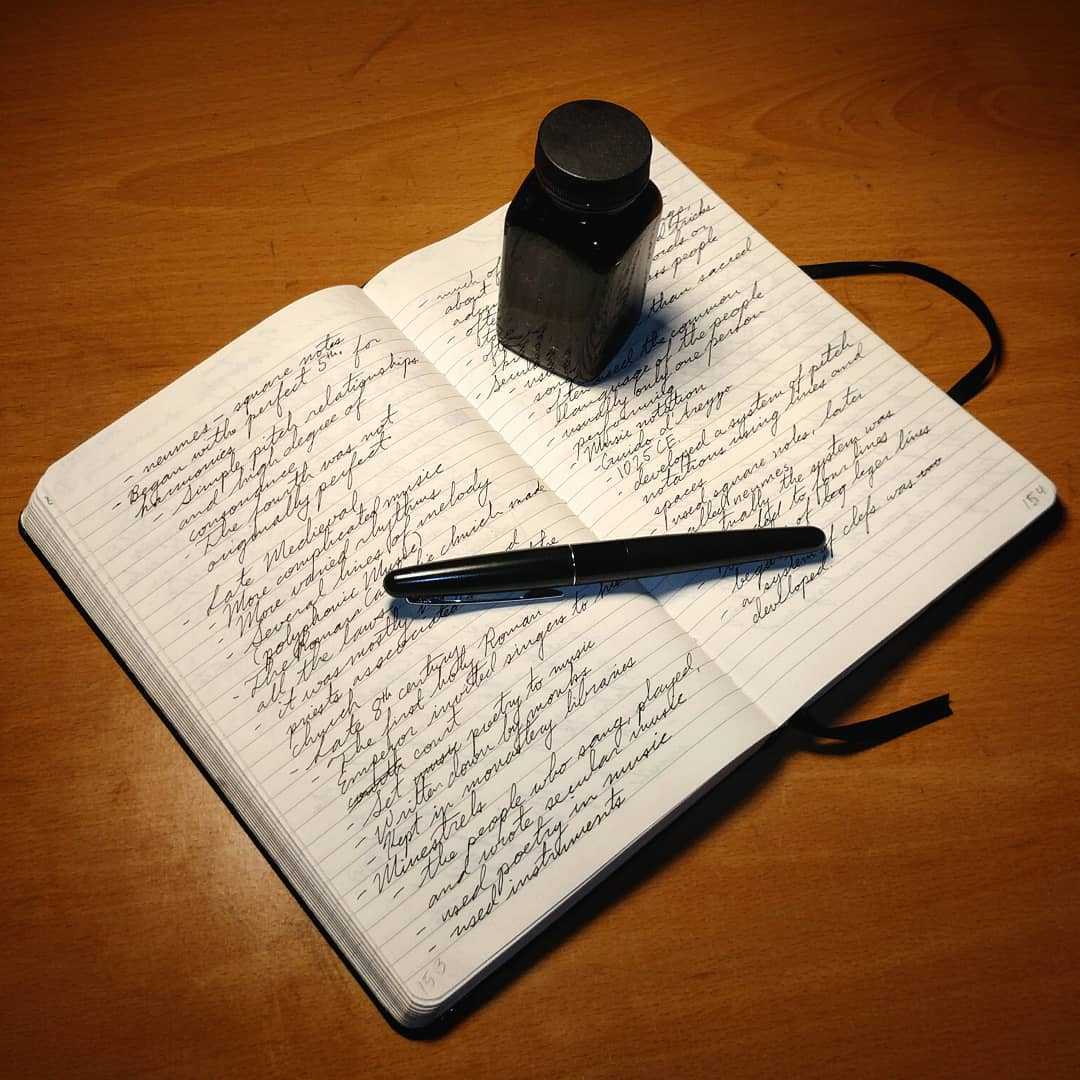 - neumes - square notes
- Began with perfect 5th. for
harmonies
- Simple, pitch relationships
and high degree of
consonance
- The fourth was not
originally perfect
Late Medieval
- More complicated music
- More varied rhythms
- Several lines of melody
(polyphonic Music)
- The Roman Ca c church made
all the laws d
- it was mostly the
priests associated
Church
- Late 8th century
- The first holy Roman
Emperor invited singers to his
court
- Set music poetry to music
- Written down by monks
- Kept in monastery libraries
- Minestrels
- the people who sang, played,
and wrote secular music
- used poetry in music
- used instruments
153
- much of ngs,
about tricks
ords or
- ofte ss people
than sacred
- Secul
- often used the common
language of the people
- usually only one person
performing
- Music notation
- Guido d'Arezzo
- 1025 CE
- developed a system of pitch
notations using lines and
spaces
- used square notes, later
called neumes
tually the system was
ed to four lines
of ledger lines
bega
- a system of clefs was
developed
154